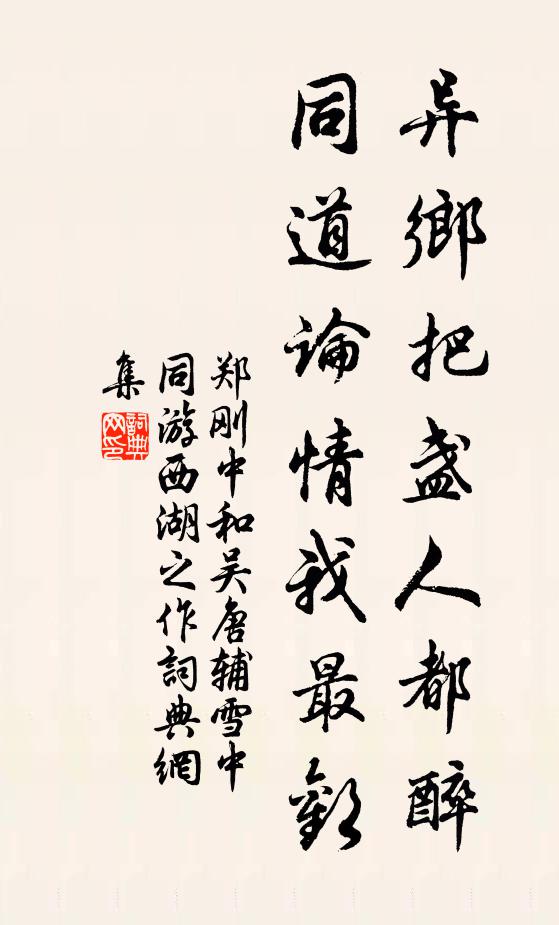 异鄉把盏人都醉
同道論情我最歡
郑刚中和吴唐辅雪中
同游西湖之作詞典網
集
詞典
网印